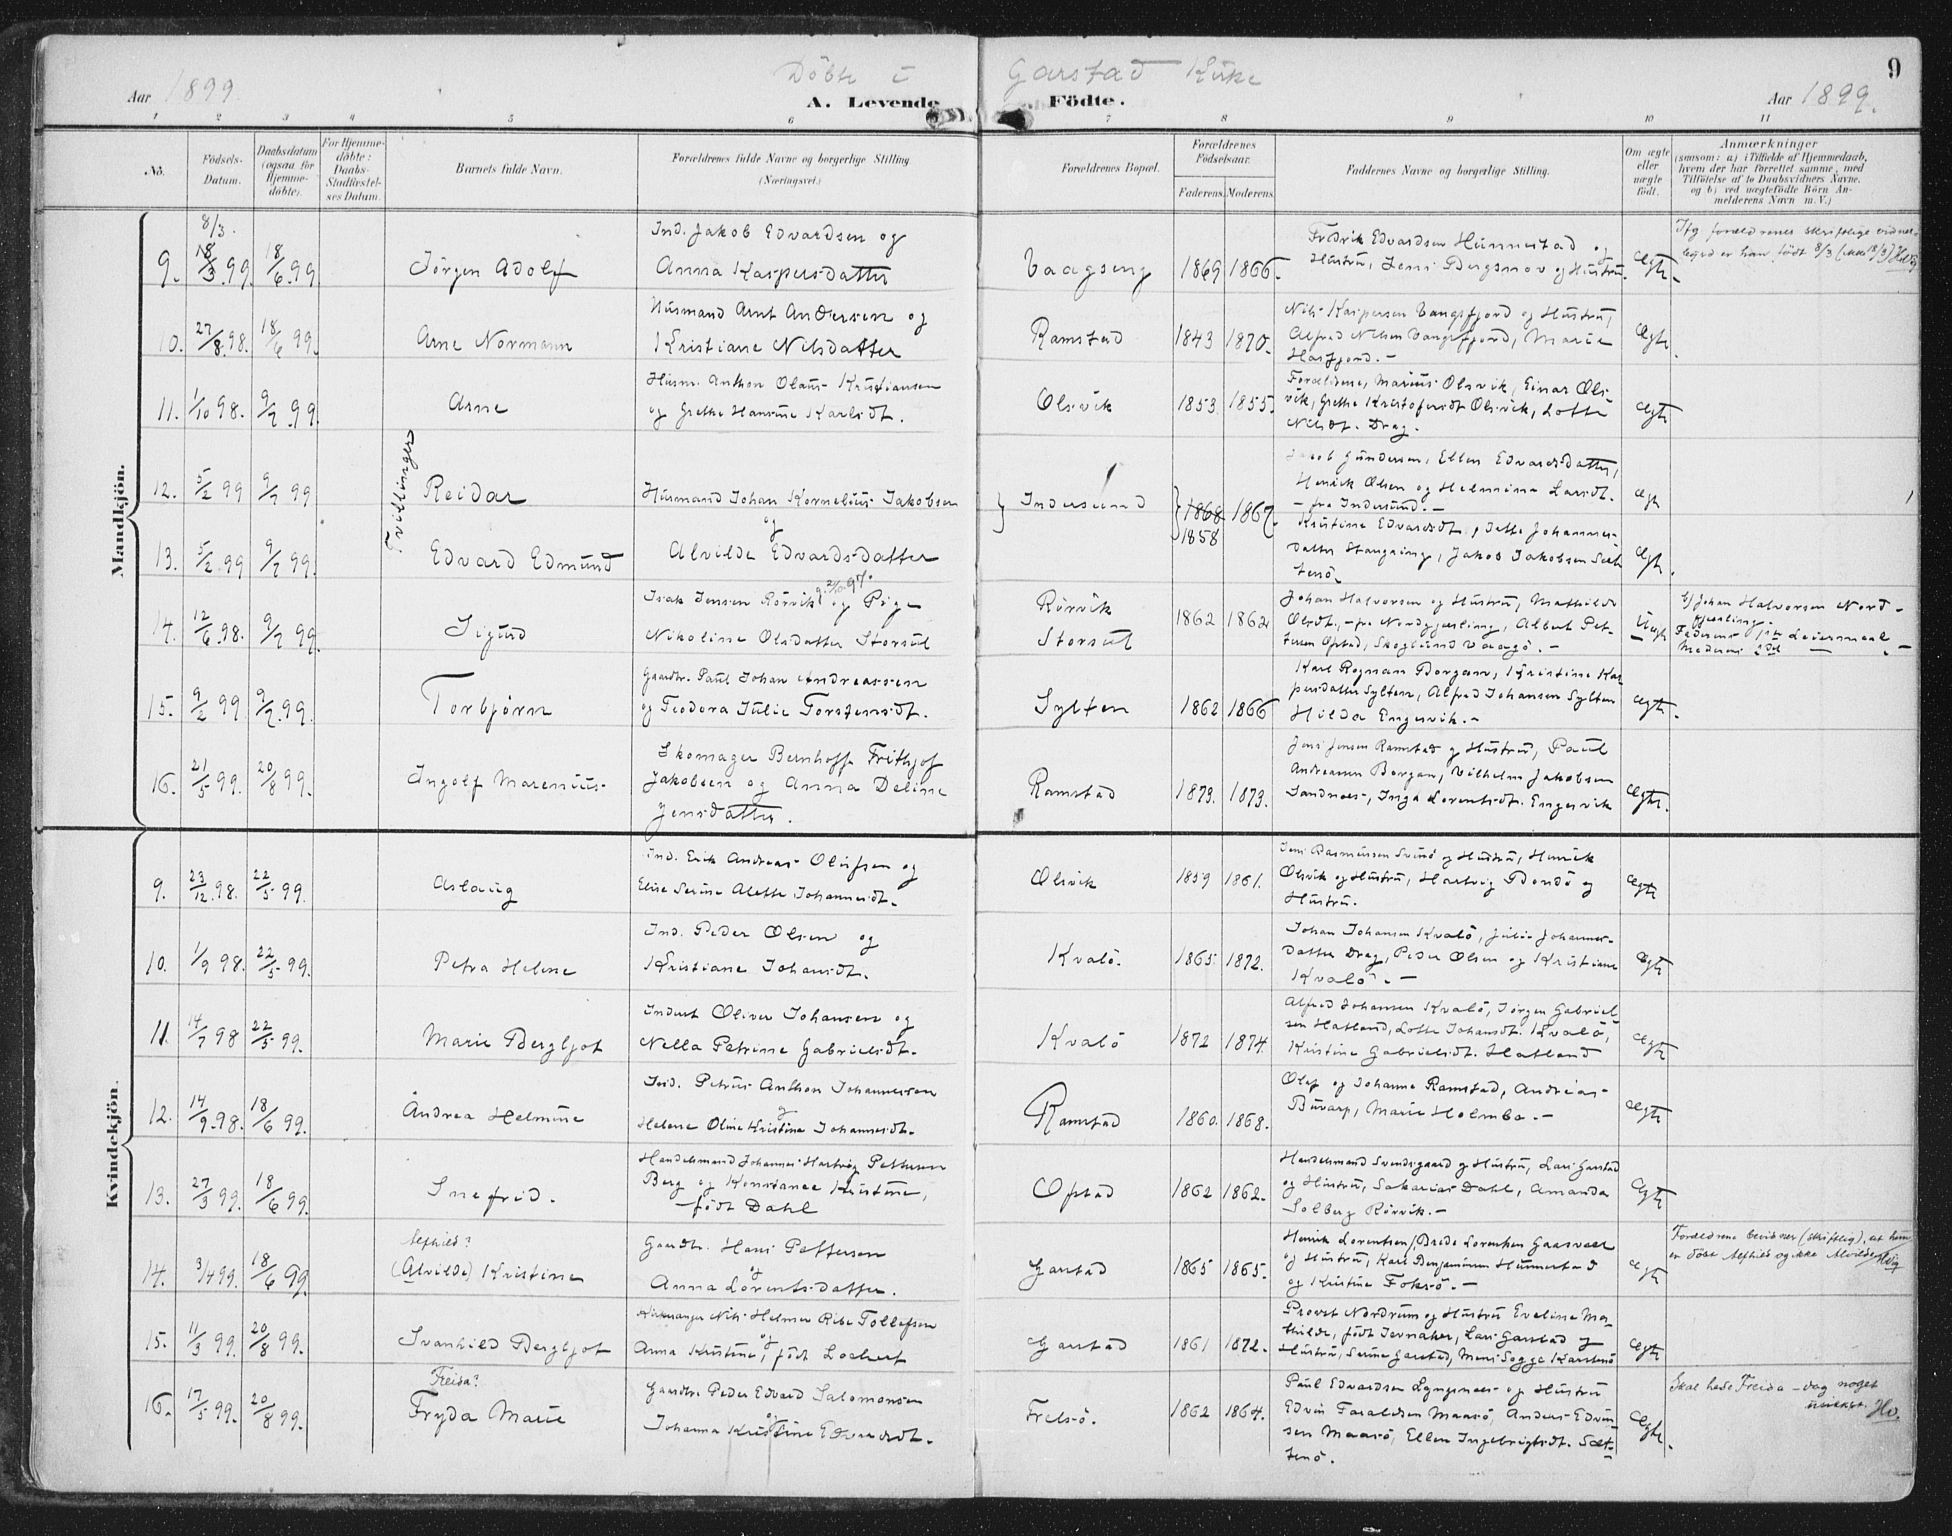 9
Döbte i Garstad Kirke
Aar 1899. A. Levende Födte. Aar 1899.
1 2 3 4 5 6 7 8 9 10 11
No.
Födsels-Datum.
Daabsdatum (ogsaa for Hjemmedöbte).
For Hjemmedöbte: Daabs-Stadfæstelses Datum.
Barnets fulde Navn.
Forældrenes fulde Navne og borgerlige Stilling
(Næringsvei.)
Forældrenes Bopæl.
Forældrenes Födselsaar.
Faderens. Moderens.
Faddernes Navne og borgerlige Stilling.
Om ægte eller uægte födt.
Anmærkninger
(saasom: a) i Tilfælde af Hjemmedaab,
hvem der har forrettet samme, med
Tilföielse af to Daabsvidners Navne,
og b) ved uægtefödte Börn An-
melderens Navn m. V.)
Mandkjön.
8/3.
9. 18/3 99. 18/6 99. Jörgen Adolf
Ind. Jakob Edvardsen og
Anna Kaspersdatter
Vaagseng 1869 1866.
Fredrik Edvardsen Hunnestad og
Hustru, Jens Bergsnov og Hustru.
Ægte.
Ifg forældrenes skriftlige vidnes-
byrd er han født 8/3 (ikke 18/3)
10. 27/8 98. 18/6 99. Arne Normann
Husmand Arnt Andersen og
Kristiane Nilsdatter
Ramstad 1843 1870.
Nils Kaspersen Vangsfjord og Hustru,
Alfred Nilsen Vangsfjord, Marie
Horsfjord.
Ægte.
11. 1/10 98. 9/7 99. Arne
Husm. Anthon Olaus Kristiansen
og Grethe Hansine Karlsdt.
Olsvik 1853. 1855.
Forældrene, Marius Olsvik, Einar Ols-
vik, Grethe Kristofersdt Olsvik, Lotte
Nilsdt. Drag.
Ægte
Tvillinger
12. 5/2 99 9/7 99 Reidar
Husmand Johan Kornelius Jakobsen
og
Indersund 1868 1867.
1858
Jakob Gundersen, Ellen Edvardsdatter,
Henrik Olsen og Helmine Larsdt.
- fra Indersund. -
Ægte
13. 5/2 99 9/7 99. Edvard Edmund
Alvilde Edvardsdatter
Kristine Edvardsdt, Jette Johannes-
datter Stangning, Jakob Jakobsen Sæt-
tenö.
Ægte.
14. 12/6 98. 9/7 99. Sigurd
Isak Jensen Rörvik og Pige
Nikoline Olsdatter Storsul
Rörvik
Storsul
1862 1862
Johan Halvorsen og Hustru, Mathilde
Olsdt, - fra Nordgjæsling, Albert Pet-
tersen Opstad, Skoglund Vaagö. -
Uægte
b) Johan Halvorsen Nord-
gjæsling.
Faderens 1ste Leiermaal
Moderens 2det — " —
15. 9/2 99 9/7 99. Torbjörn
Gaardbr. Paul Johan Andreassen
og Teodora Julie Torstensdt.
Sylten 1862 1866
Karl Rognan Borgan, Kristine Kas-
persdatter Sylten, Alfred Johansen Sylten
Hilda Engesvik. -
Ægte.
16. 21/5 99. 20/8 99. Ingolf Marenius
Skomager Bernhoff Frithjof
Jakobsen og Anna Deline
Jensdatter.
Ramstad 1873. 1873.
Jens Jensen Ramstad og Hustru, Paul
Andreassen Borgan, Vilhelm Jakobsen
Sandnes, Inga Lorentsdt. Engesvik
Ægte.
Kvindekjön.
9. 23/12 98. 22/5 99. Aslaug
Ind. Erik Andreas Olufsen og
Elise Serine Alette Johannesdt.
Olsvik 1859 1861.
Jens Rasmussen Svinö og Hustru, Henrik
Olsvik og Hustru, Hartvig Bondö og
Hustru.
Ægte
10. 1/9 98. 22/5 99. Petra Helene
Ind. Peder Olsen og
Kristiane Johansdt.
Kvalö. 1865 1872.
Johan Johansen Kvalö, Julie Johannes-
datter Drag, Peder Olsen og Kristiane
Kvalö. -
Ægte
11. 14/7 98 22/5 99. Marie Bergljot
Inderst Oliver Johansen og
Nella Petrine Gabrielsdt.
Kvalö 1872 1874.
Alfred Johansen Kvalö, Jörgen Gabriel-
sen Hatland, Lotte Johansdt. Kvalö,
Kristine Gabrielsdt. Hatland
Ægte
12. 14/9 98. 18/6 99. Andrea Helmine
Ind. Petrus Anthon Johannessen
og
Helene Oline Kristine Johannesdt.
Ramstad 1860. 1868.
Olef og Johanne Ramstad, Andreas
Buvarp, Marie Holmbo. -
Ægte
13. 27/3 99. 18/6 99. Snefrid.
Handelsmand Johannes Hartvig Pettersen
Berg og Konstance Kristine,
född Dahl
Opstad 1862 1862.
Handelsmand Svendsgaard og Hustru, Lars Garstad
og Hustru, Sakarias Dahl, Amanda
Solberg Rörvik. -
Ægte
Alfhild?
14. 3/4 99. 18/6 99. (Alvilde) Kristine
Gaardbr. Hans Pettersen
og
Anna Lorentsdatter.
Garstad 1865 1865.
Henrik Lorentsen, Brede Lorentsen Gaasvær
og Hustru, Karl Benjaminsen Hunnestad
og Kristine Foksö. -
Ægte
Forældrene bevidner (skriftlig), at hun
er døbt Alfhild og ikke Alvilde
15. 11/3 99. 20/8 99. Svanhild Bergljot
Kirkesanger Nils Helmer Ribe Tollefsen
og
Anna Kristine, född Lochert
Garstad 1861 1872.
Provst Nordrum og Hustru Eveline Ma-
thilde, född Jevnaker, Lars Garstad og
Hustru, Serine Garstad, Mens Sogge Karstenö
Ægte
Freida?
16. 17/5 99. 20/8 99. Fryda Marie
Gaardbr. Peder Edvard Salomonsen
og
Johanna Kristine Edvardsdt.
Frelsö. 1862 1864.
Paul Edvardsen Lyngsnes og Hustru
Edvin Faraldsen Maasö, Anders Edvin-
sen Maasö, Ellen Ingebrigtsdt. Sæt-
tenö.
Ægte.
Skal hede Freida - dog noget
usikkert. Hv.